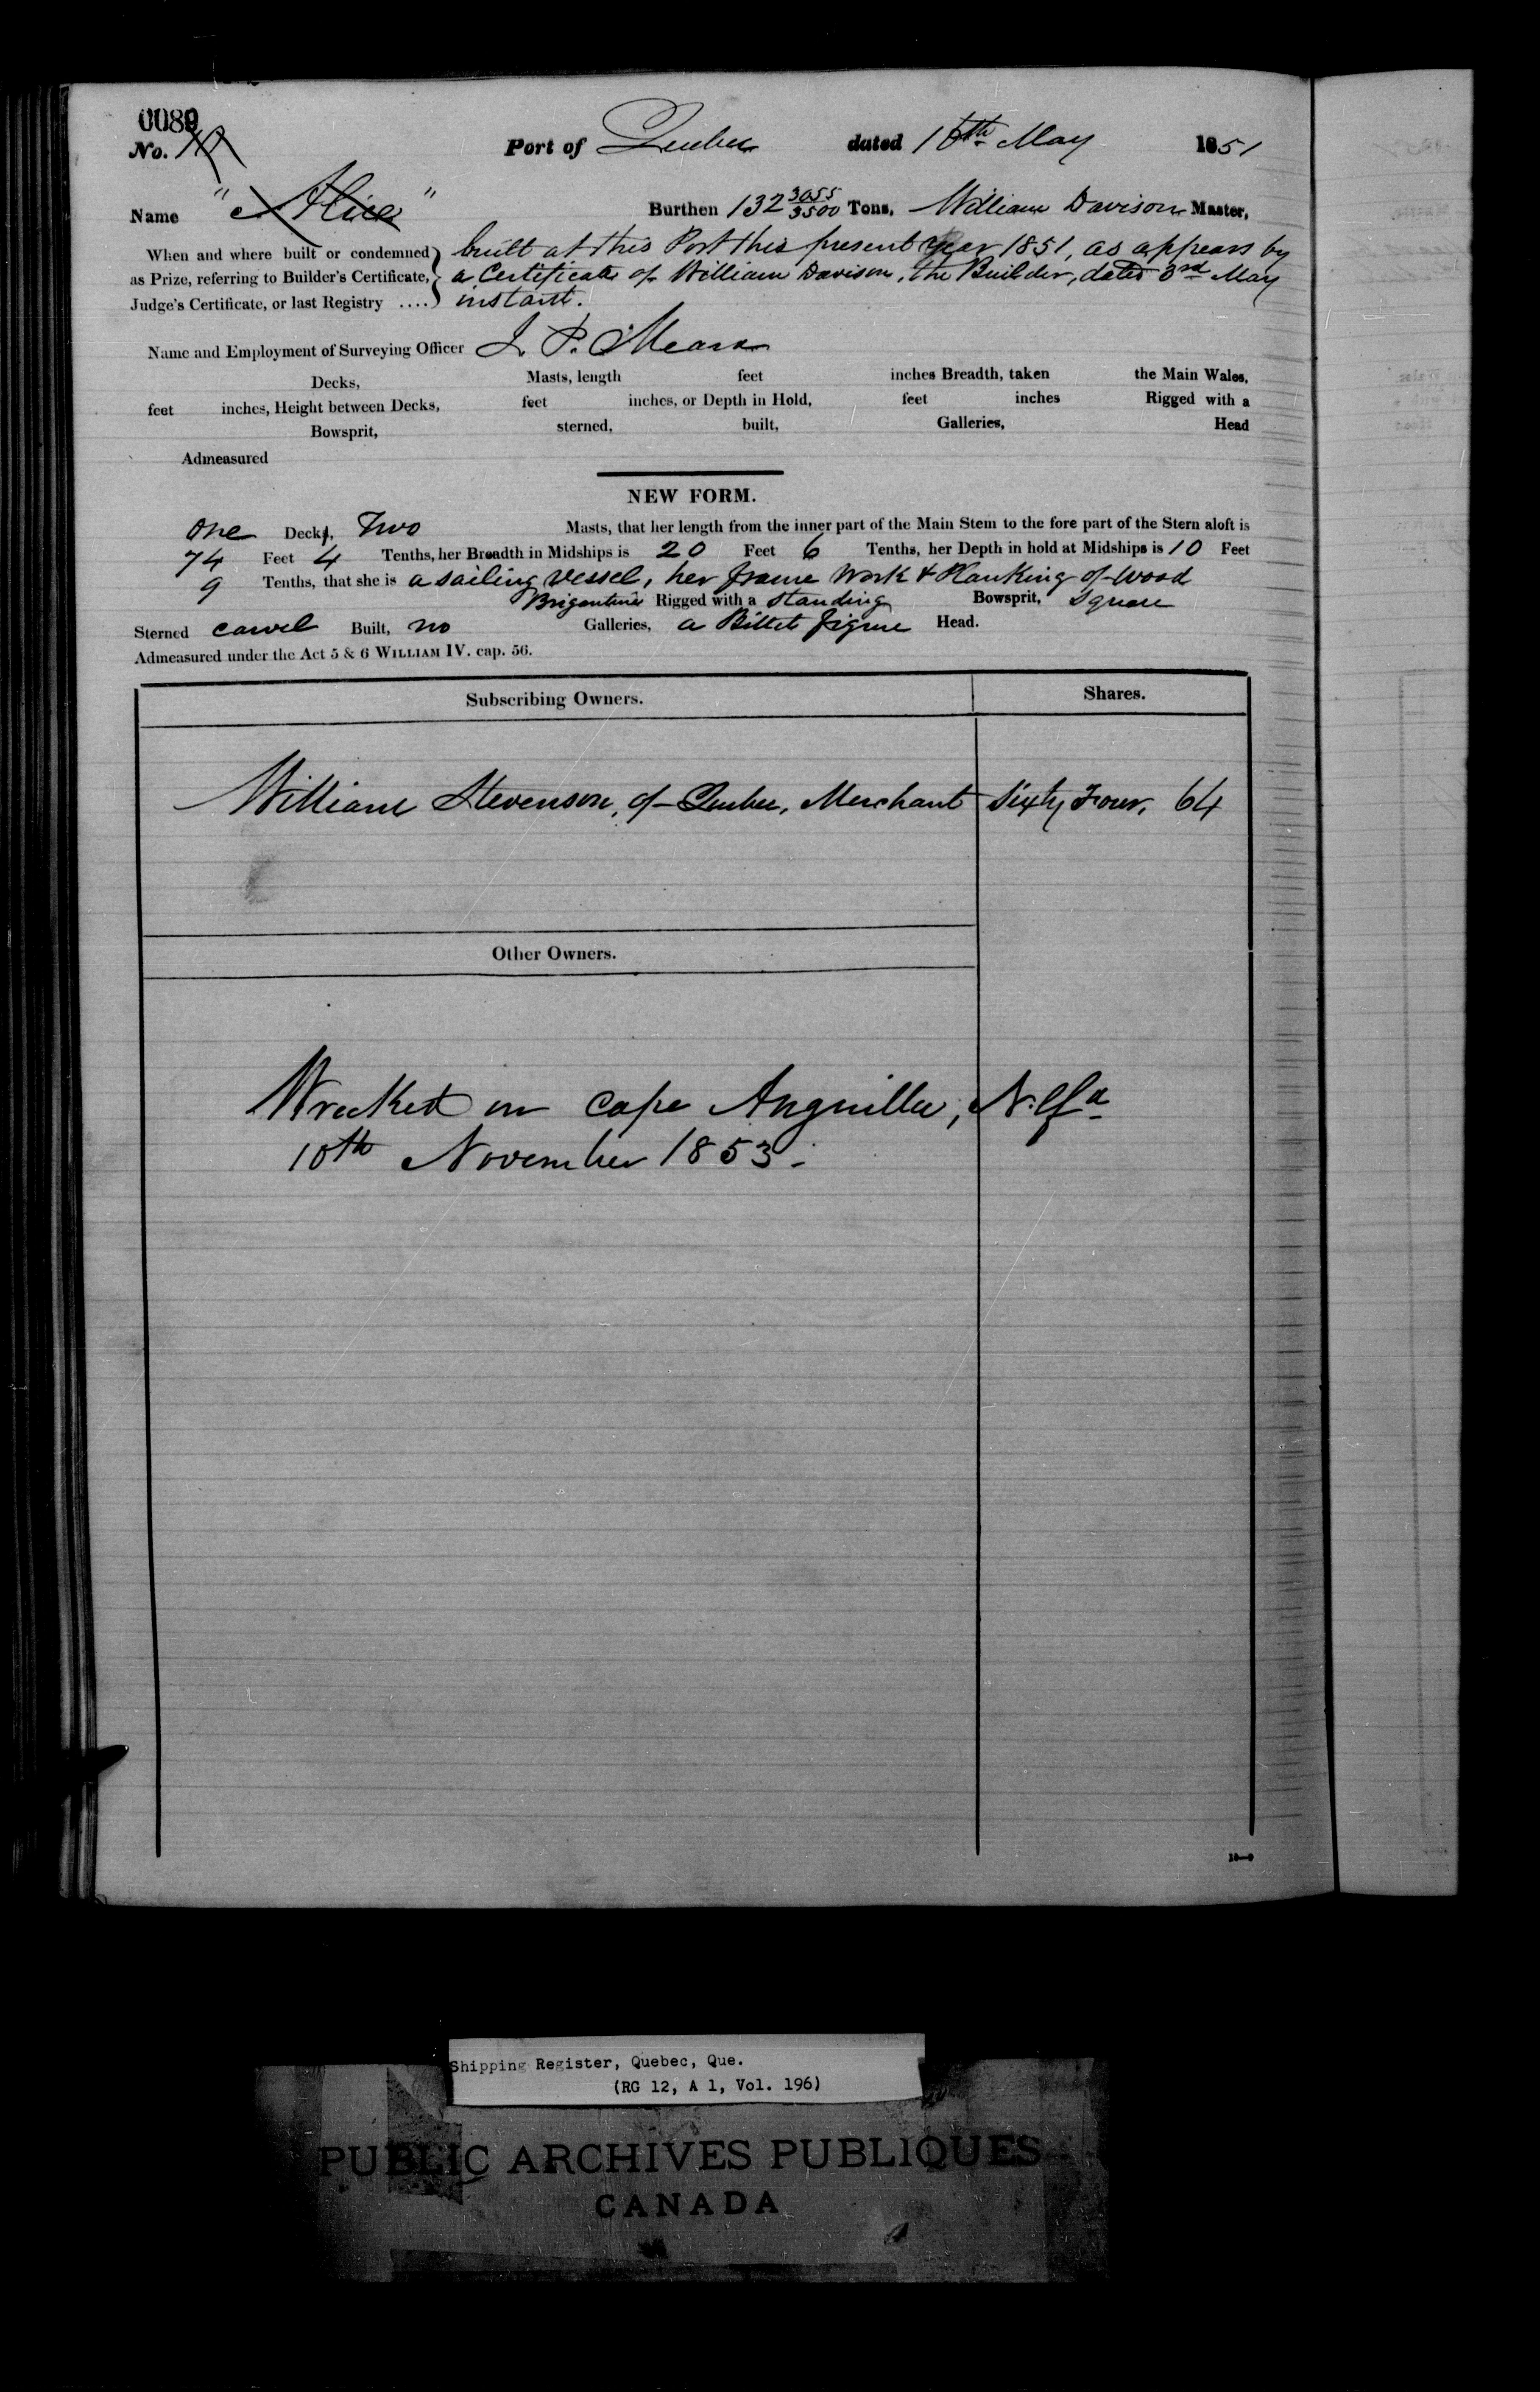 0089
No. 19 Port of Quebec dated 16th May 1851
Name "Alice" Burthen 132 3055/3500 Tons, William Davison Master,
When and where built or condemned as Prize, referring to Builder's Certificate, Judge's Certificate, or last Registry ....
built at this Port this present year 1851, as appears by
a Certificate of William Davison, the Builder, dated 3rd May
instant.
Name and Employment of Surveying Officer J. P. Meara
Decks, Masts, length feet inches Breadth, taken the Main Wales,
feet inches, Height between Decks, feet inches, or Depth in Hold, feet inches Rigged with a
Bowsprit, sterned, built, Galleries, Head
Admeasured
NEW FORM.
One Deck, Two Masts, that her length from the inner part of the Main Stem to the fore part of the Stern aloft is
74 Feet 4 Tenths, her Breadth in Midships is 20 Feet 6 Tenths, her Depth in hold at Midships is 10 Feet
9 Tenths, that she is a sailing vessel, her frame work & Planking of Wood
Brigantine Rigged with a standing Bowsprit, Square
Sterned carvel Built, no Galleries, a Billet figure Head.
Admeasured under the Act 5 & 6 WILLIAM IV. cap. 56.
Subscribing Owners. Shares.
William Stevenson, of Quebec, Merchant Sixty Four, 64
Other Owners.
Wrecked on Cape Anguilla, N.Fd
10th November 1853.
Shipping Register, Quebec, Que.
(RG 12, A 1, Vol. 196)
PUBLIC ARCHIVES PUBLIQUES
CANADA